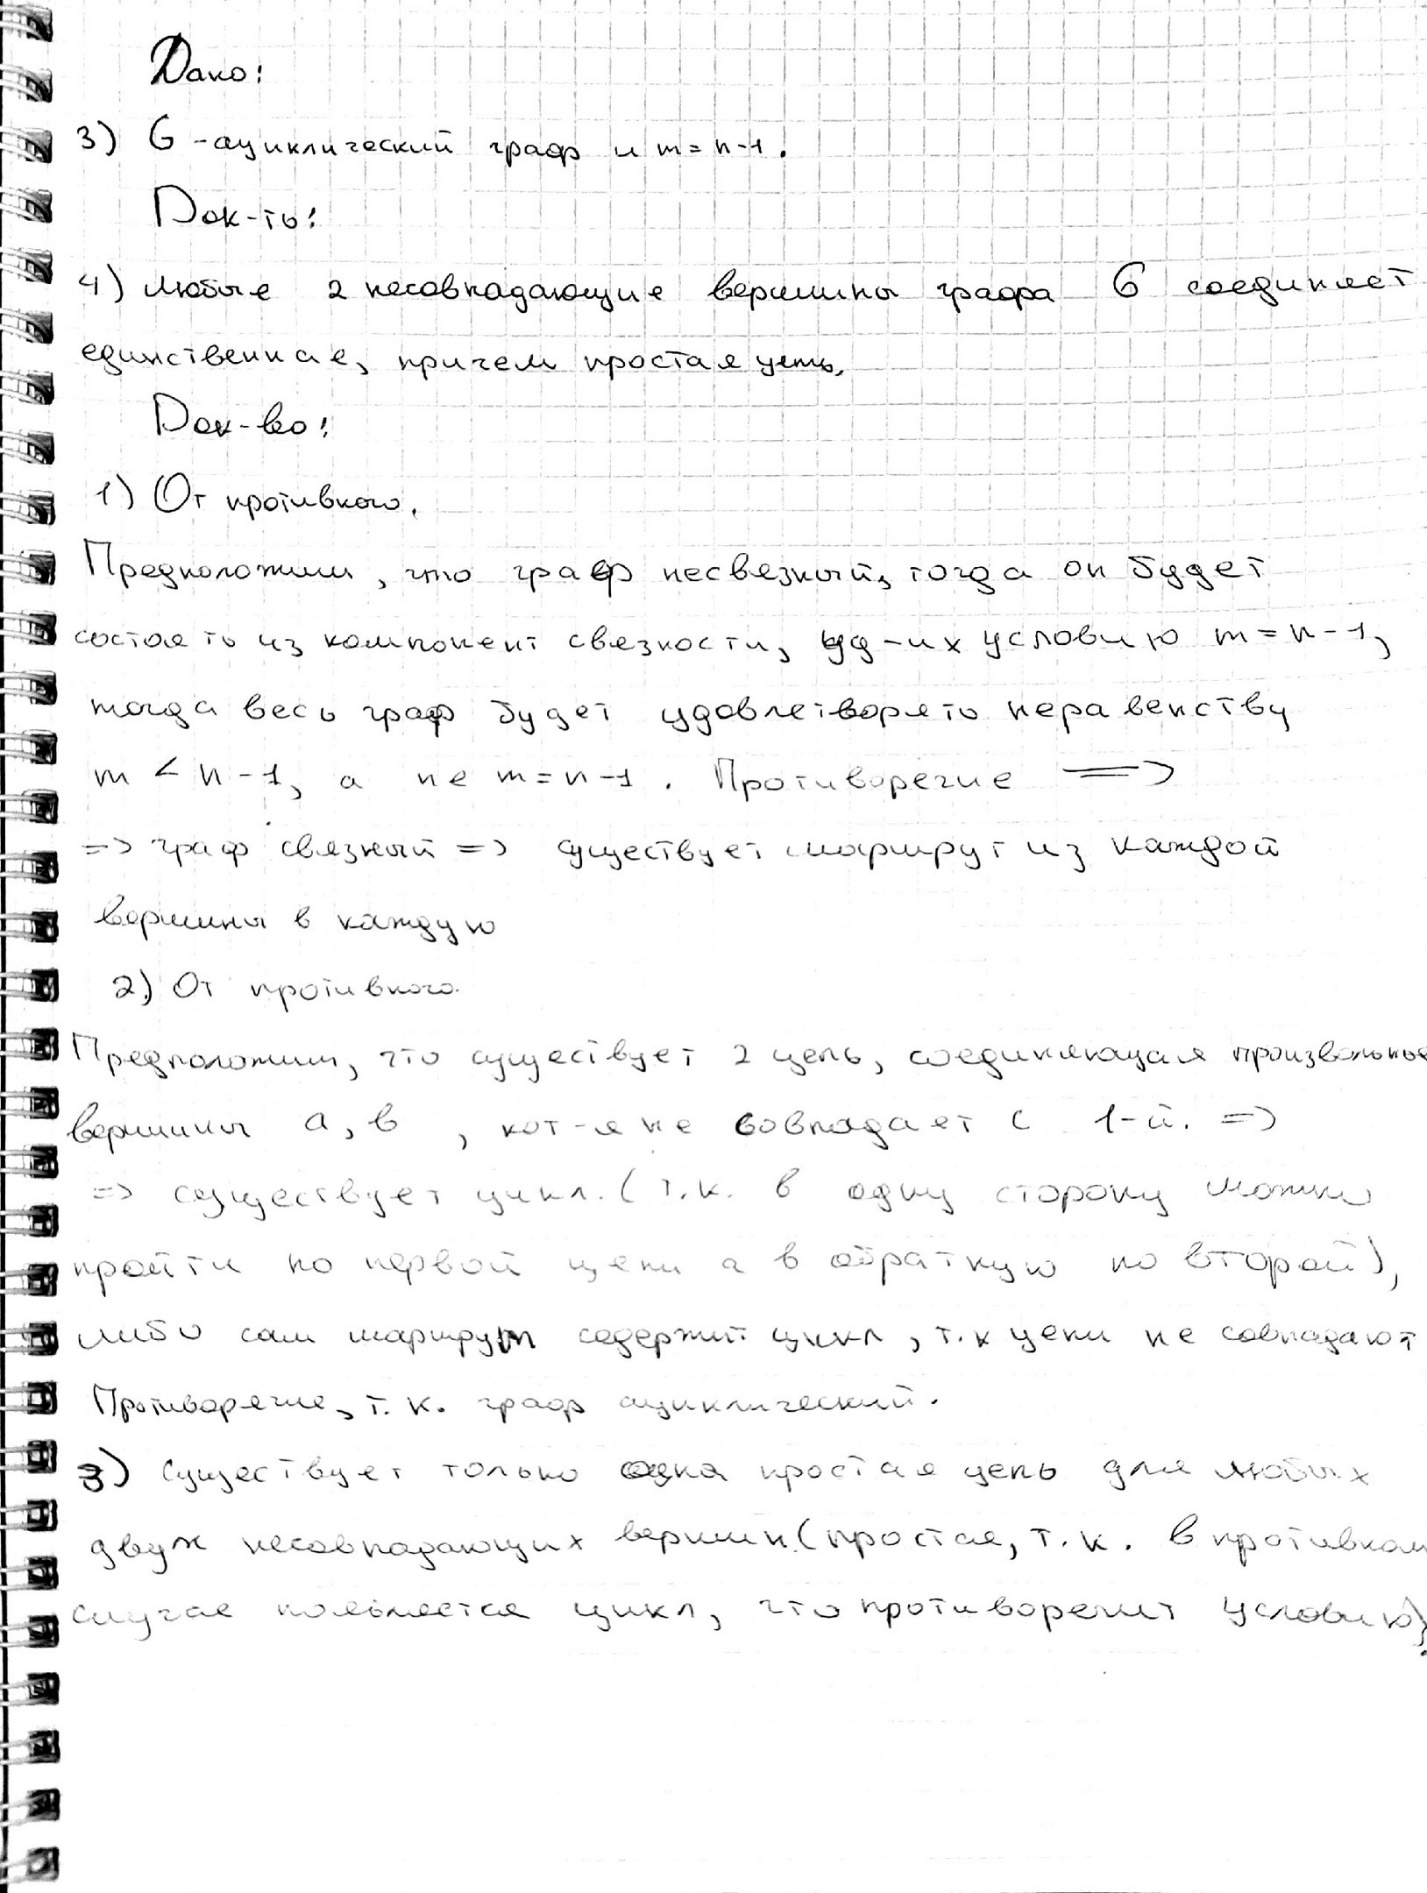 Дано:
3) G - ациклический граф и m = n-1.
Док-ть:
4) любые 2 несовпадающие вершины графа G соединяет
единственная, причем простая цепь.
Док-во:
1) От противного.
Предположим, что граф несвязный, тогда он будет
состоять из компонент связности, уд-их условию m = n-1,
тогда весь граф будет удовлетворять неравенству
m < n-1, а не m = n-1. Противоречие =>
=> граф связный => существует маршрут из каждой
вершины в каждую
2) От противного.
Предположим, что существует 2 цепь, соединяющая произвольные
вершины a, b, кот-я не совпадает с 1-й. =>
=> существует цикл. (т.к. в одну сторону можно
пройти по первой цепи а в обратную по второй),
либо сам маршрут содержит цикл, т.к цепи не совпадают
Противоречие, т.к. граф ациклический.
3) Существует только одна простая цепь для любых
двух несовпадающих вершин (простая, т.к. в противном
случае появляется цикл, что противоречит условию).